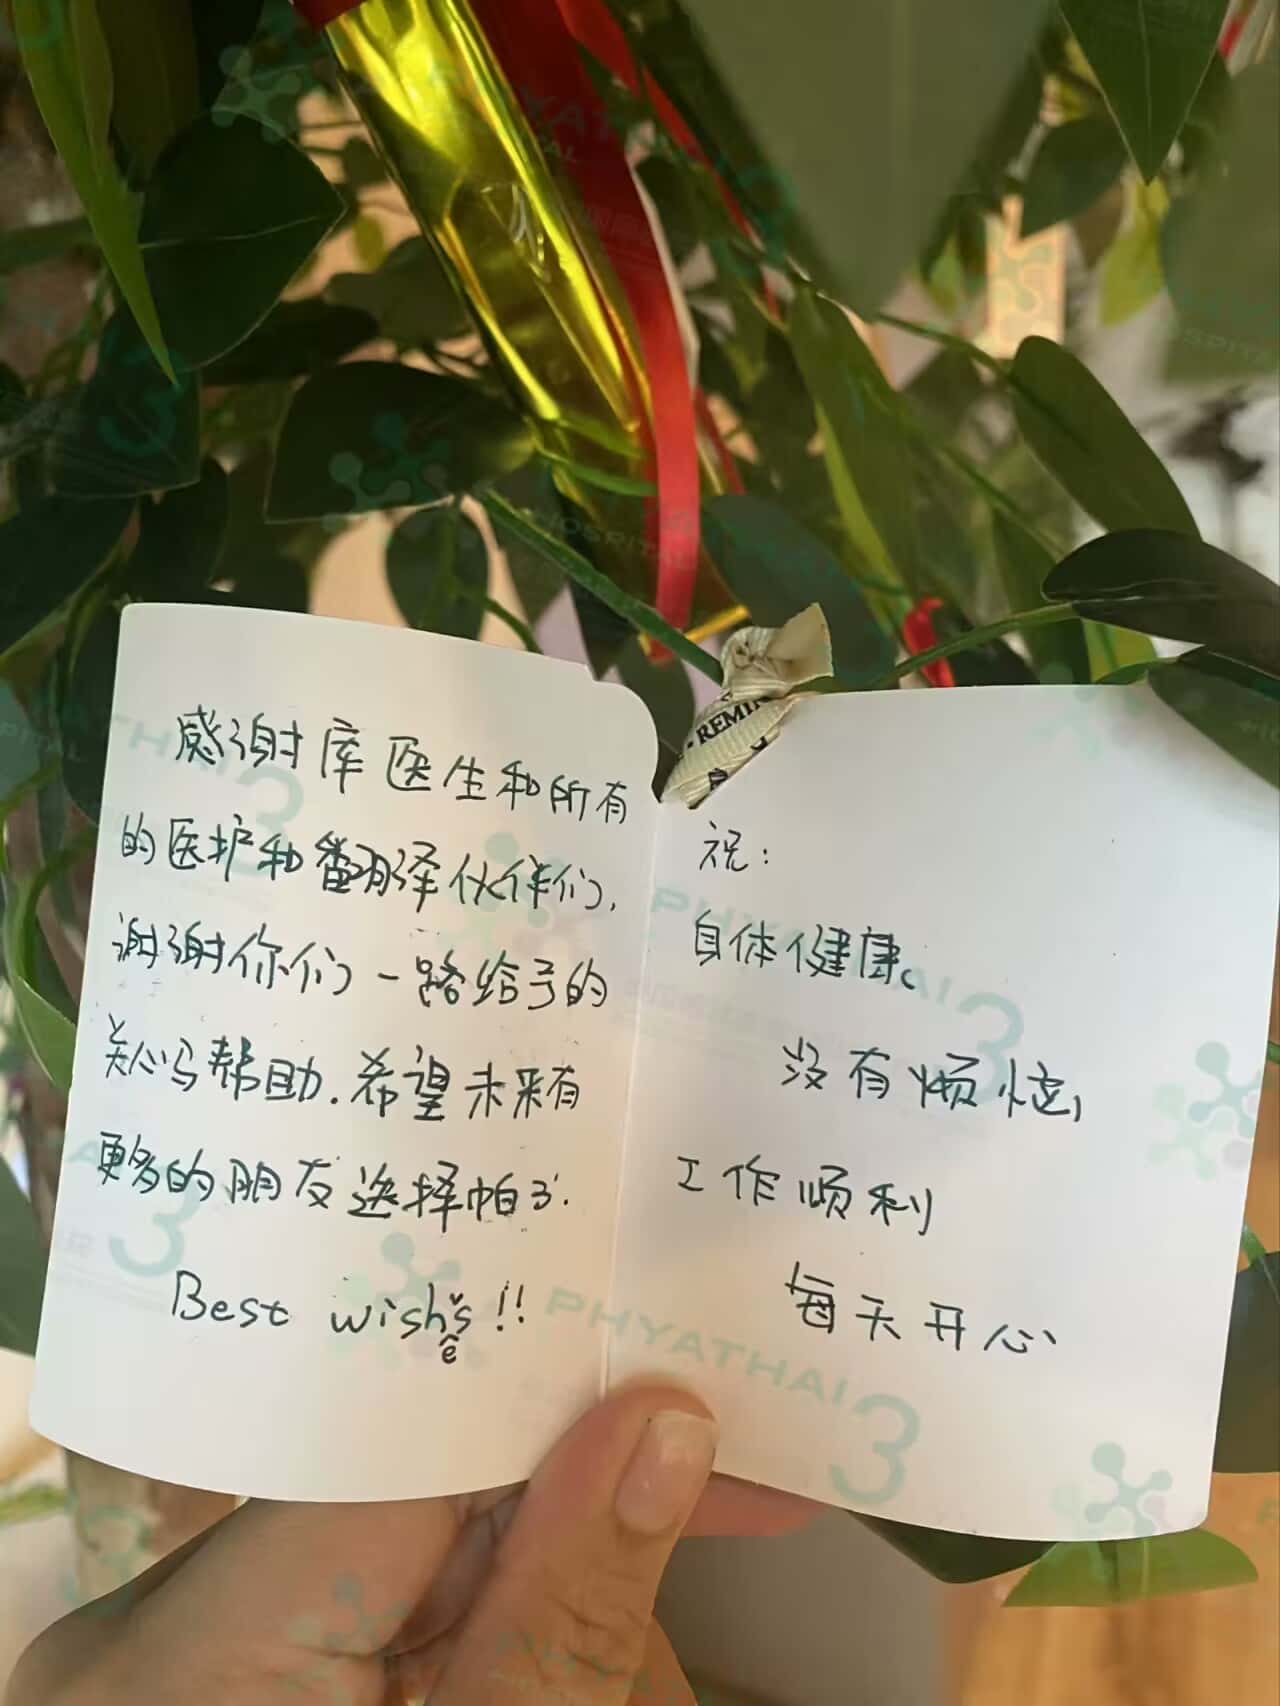 感谢库医生和所有
的医护和翻译伙伴们,
谢谢你们一路给予的
关心与帮助.希望未来有
更多的朋友选择帕3.
Best wishes!!
祝:
自体健康、
没有烦恼,
工作顺利
每天开心
REMIN
PHYATHAI 3